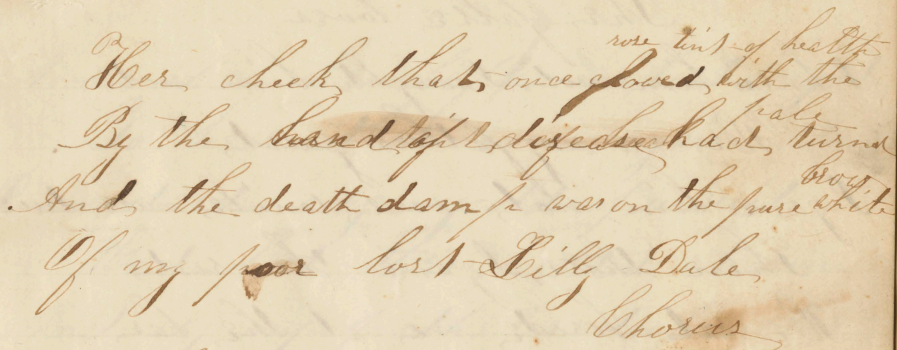 Her cheek that once glowed with the rose tint of health
By the hand of disease had turnd pale
And the death damp was on the pure white brow
Of my poor lost Lilly Dale
Chorus